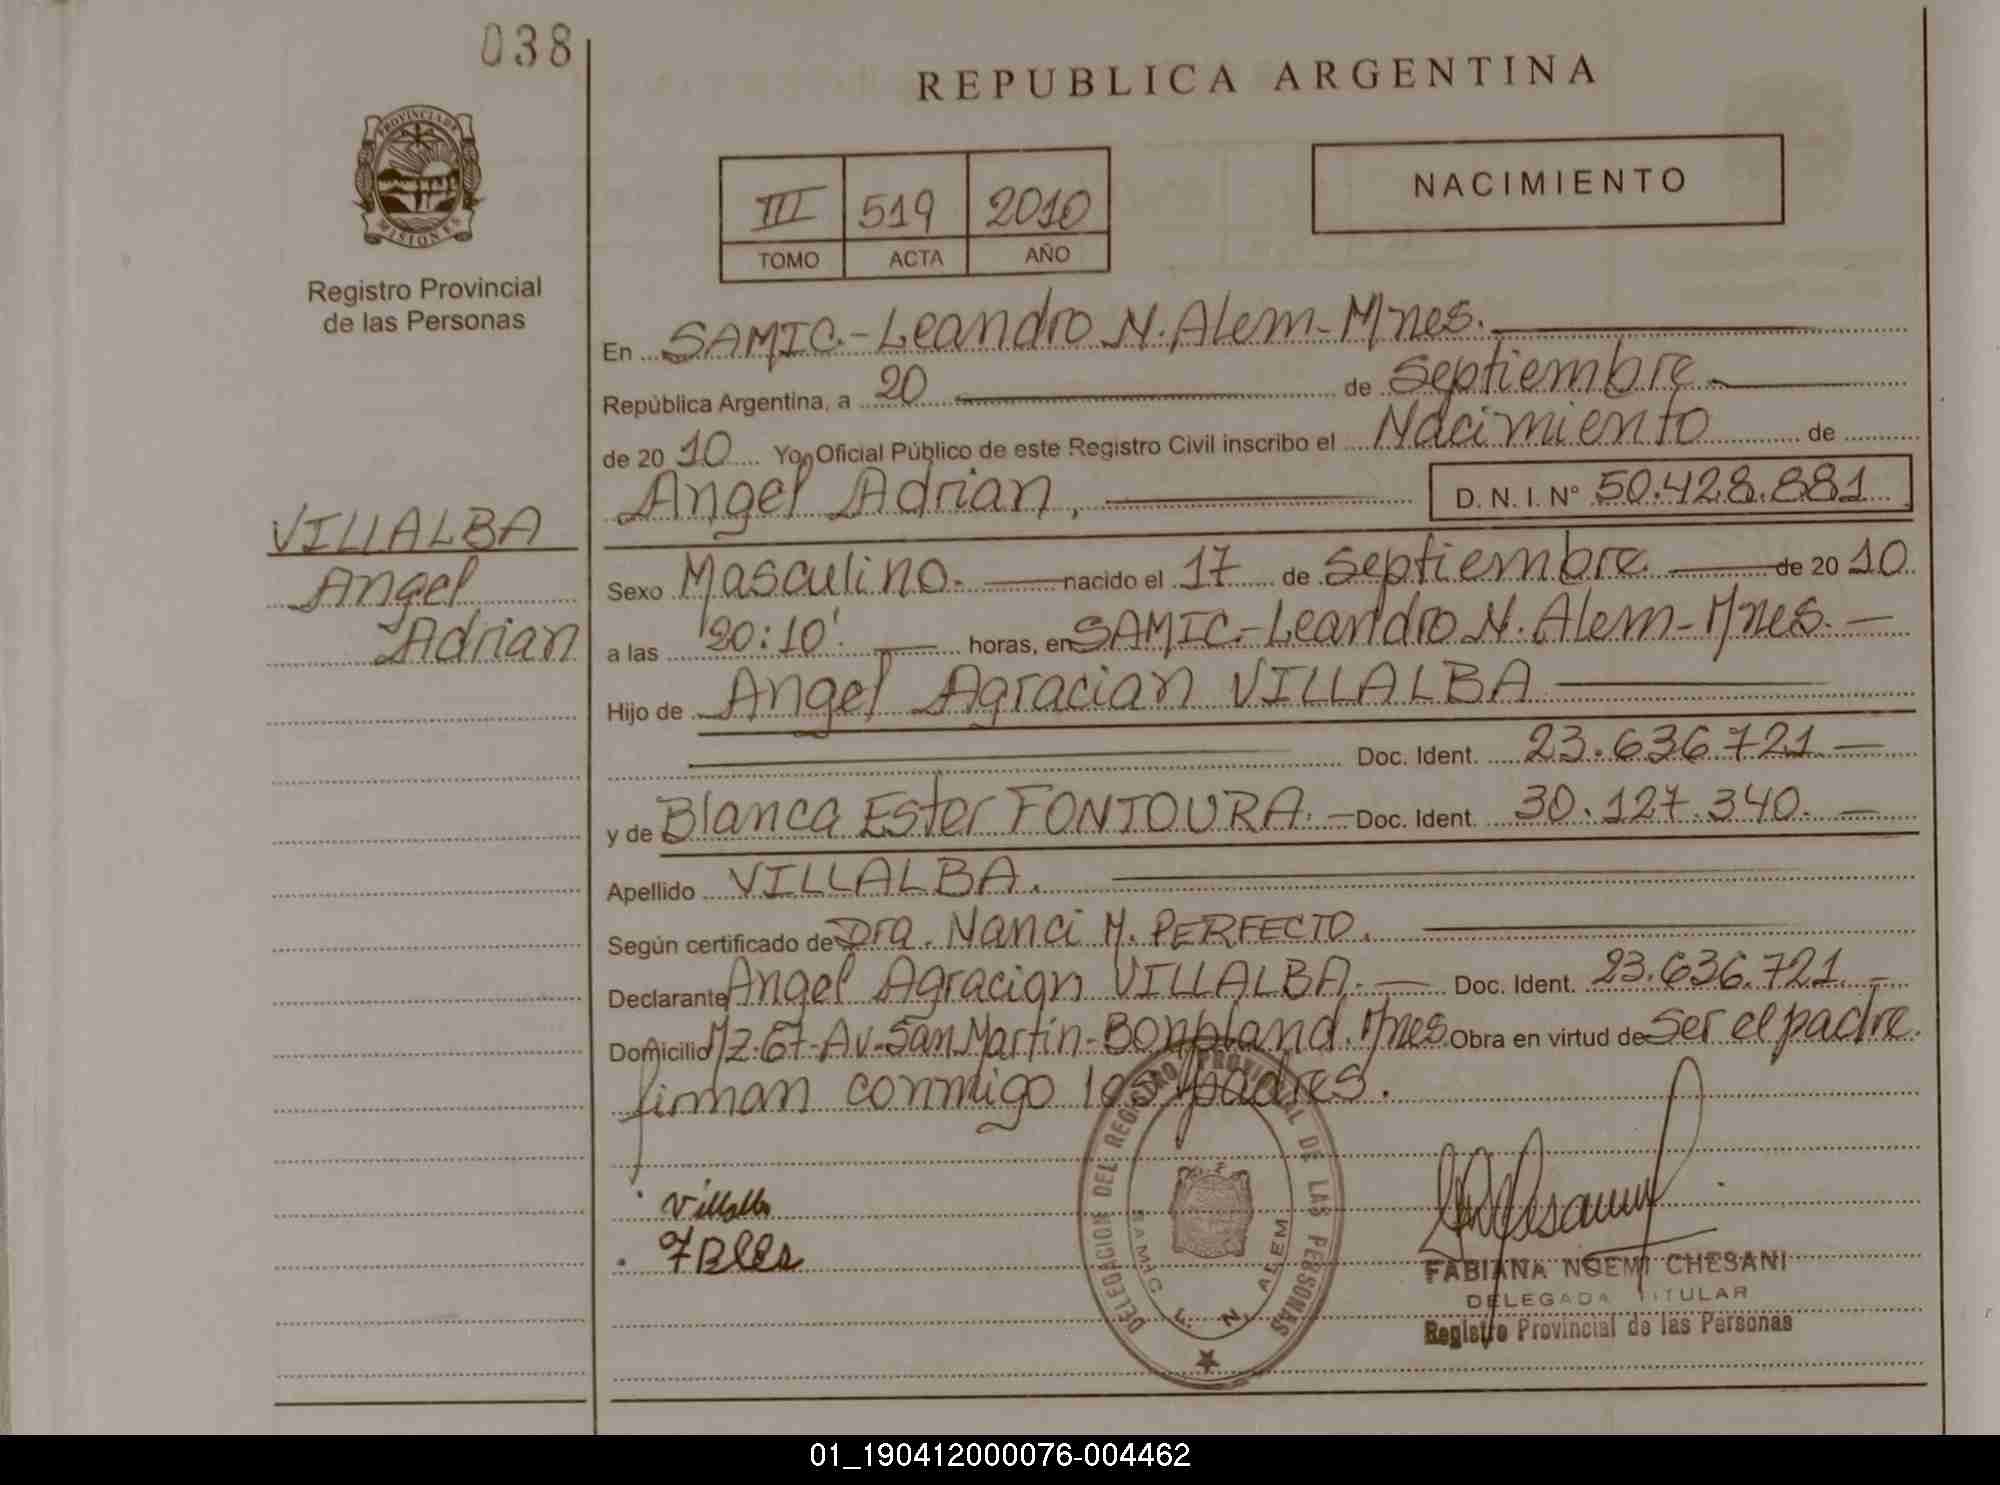 038
REPUBLICA ARGENTINA
PROVINCIA DE MISIONES
Registro Provincial
de las Personas
III 519 2010
TOMO ACTA AÑO
NACIMIENTO
En SAMIC.-Leandro N. Alem-Mnes.
República Argentina, a 20 de Septiembre
de 2010 Yo, Oficial Público de este Registro Civil inscribo el Nacimiento de
Angel Adrian, D. N. I. Nº 50.428.881
VILLALBA
Angel
Adrian
Sexo Masculino. nacido el 17 de Septiembre de 2010
a las 20:10' horas, en SAMIC.-Leandro N. Alem-Mnes.
Hijo de Angel Agracian VILLALBA
Doc. Ident. 23.636.721
y de Blanca Ester FONTOURA. Doc. Ident. 30.127.340.
Apellido VILLALBA.
Según certificado de Dra. Nanci M. PERFECTO.
Declarante Angel Agracian VILLALBA. Doc. Ident. 23.636.721.
Domicilio Mz.67-Av.San Martin-Bonpland.Mnes. Obra en virtud de Ser el padre.
firman conmigo los padres.
DELEGACION DEL REGISTRO PROVINCIAL DE LAS PERSONAS
SAMIC L. N. ALEM
Villalba
FABIANA NOEMI CHESANI
DELEGADA TITULAR
Registro Provincial de las Personas
01_190412000076-004462